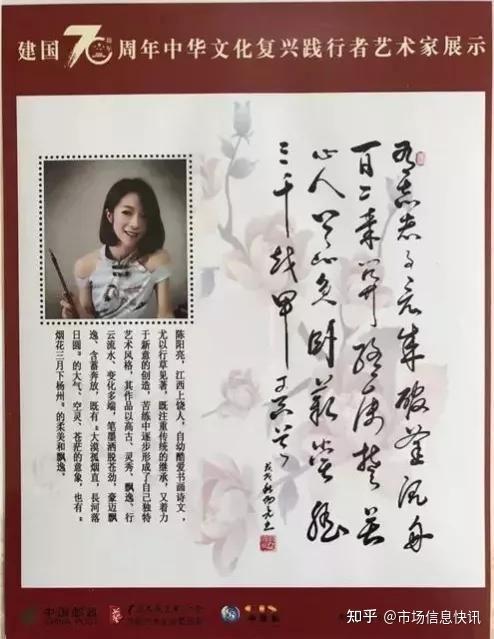 建国70周年中华文化复兴践行者艺术家展示
有志者事竟成破釜沉舟
百二秦关终属楚苦
心人天不负卧薪尝胆
三千越甲可吞吴
陈阳亮，江西上饶人，自幼酷爱书画诗文，
尤以行草见著，既注重传统的继承，又着力
于新意的创造，苦练中逐步形成了自己独特
艺术风格，其作品以高古、灵秀、飘逸、行
云流水、变化多端，笔墨洒脱苍劲，豪迈飘
逸、含蓄奔放，既有："大漠孤烟直，長河落
日圆。"的大气、空灵、苍茫的意象，也有："
烟花三月下杨州。"的柔美和飘逸。
中国邮政
CHINA POST
知乎 @市场信息快讯